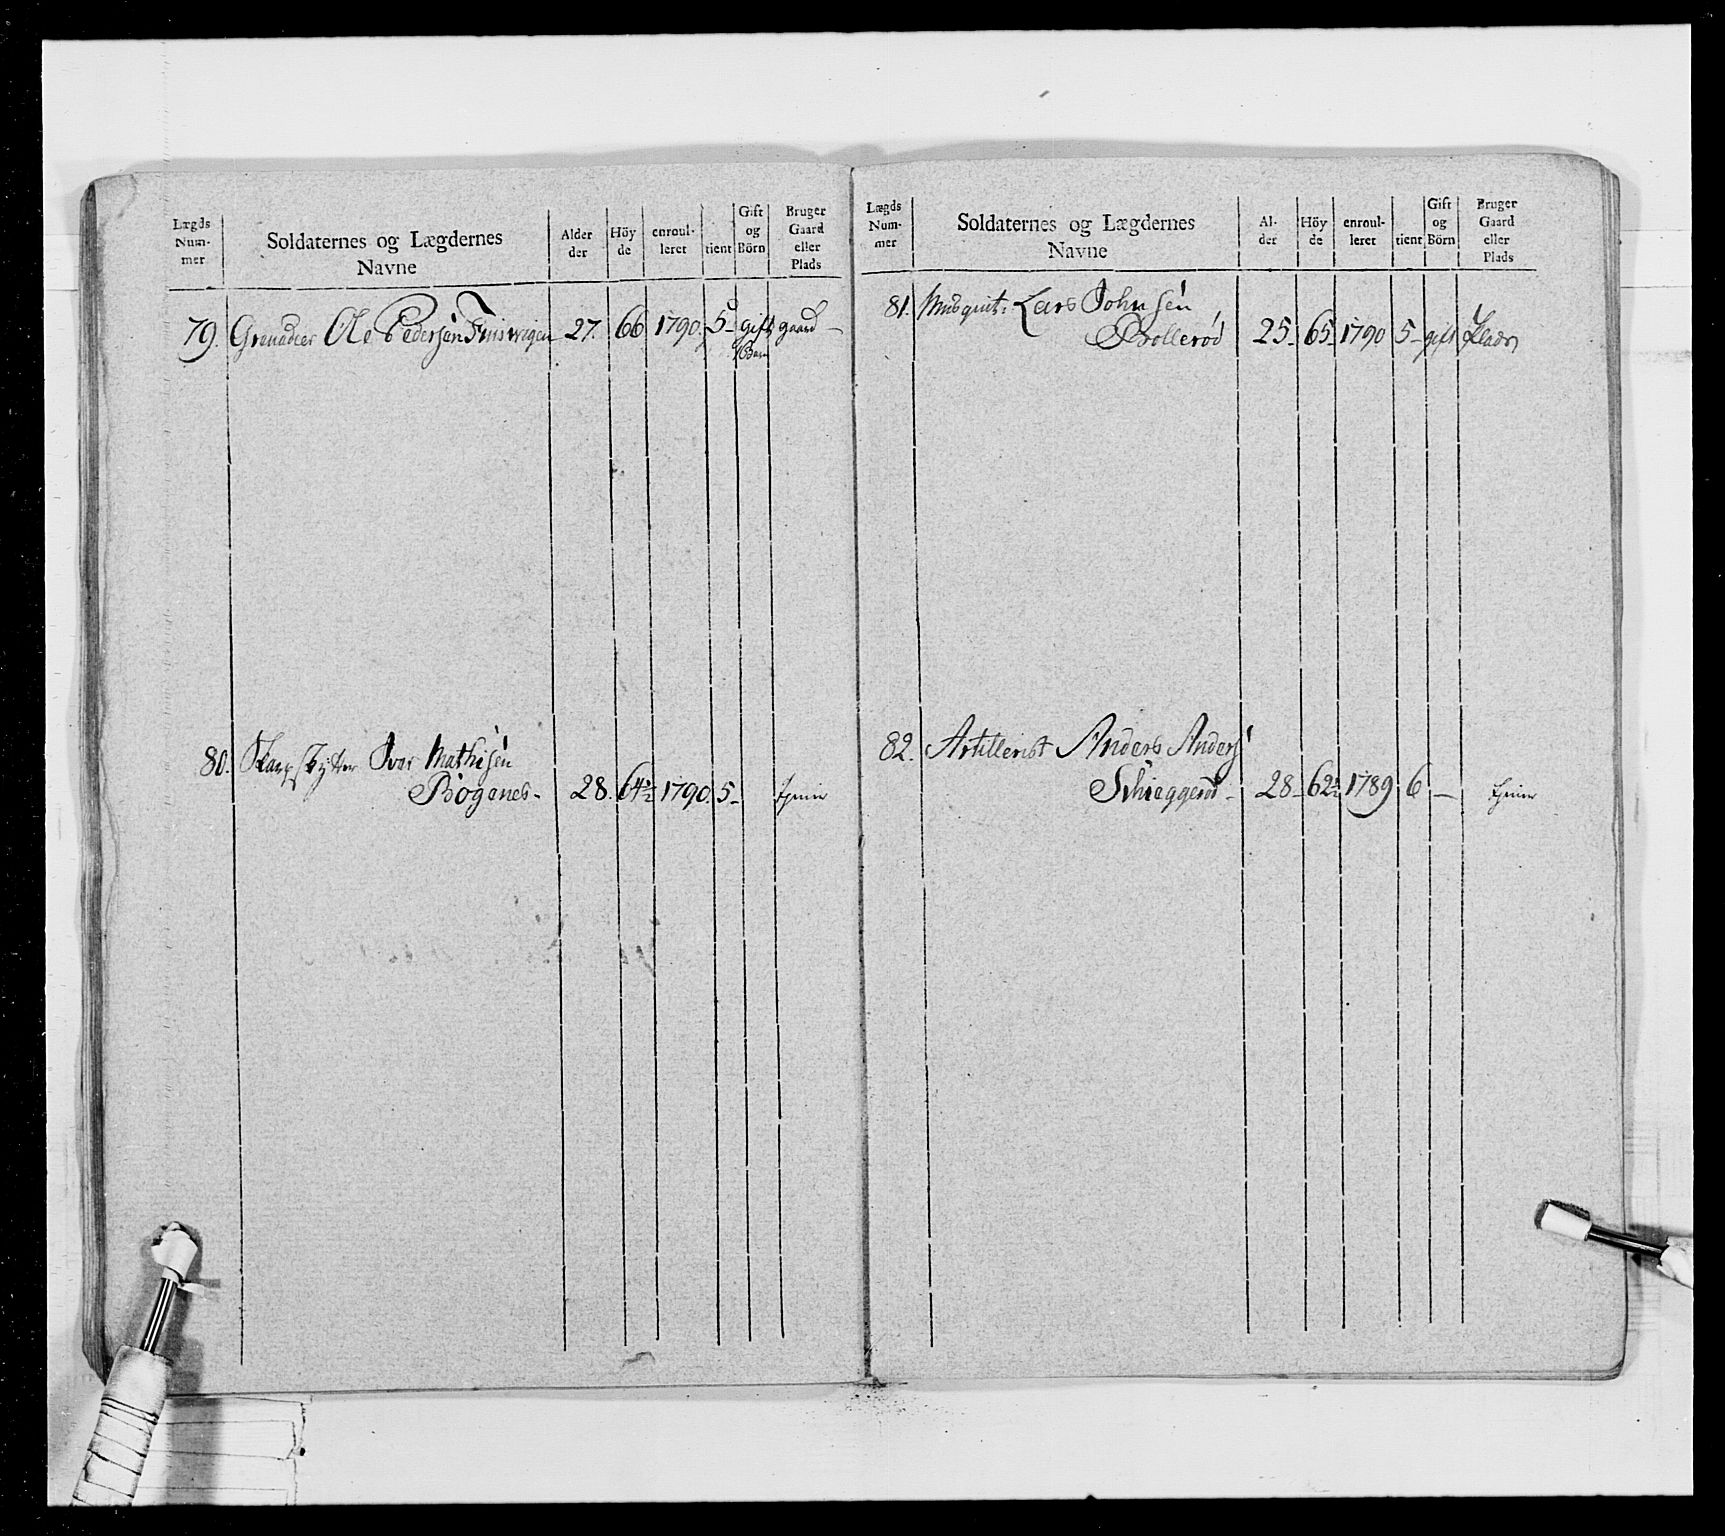 Lægds Num- mer | Soldaternes og Lægdernes Navne | Alder der | Höy de | enroul- leret | tient | Gift og Börn | Bruger Gaard eller Plads
79. Grenadeer Ole Pedersen 27. 66 1790. 5- gift gaard-
1 Barn
80. Skarpskytter Iver Mathisen
Bøgenes- 28. 64½ 1790. 5- tjener
Lægds Num- mer | Soldaternes og Lægdernes Navne | Al- der | Höy de | enroul- leret | tient | Gift og Börn | Bruger Gaard eller Plads
81. Musquit: Lars Johnsen
Brollerød 25- 65- 1790 5- gift Plads
82. Artillerist Anders Anders
Schieggerød- 28- 62½ 1789 6 - tjener